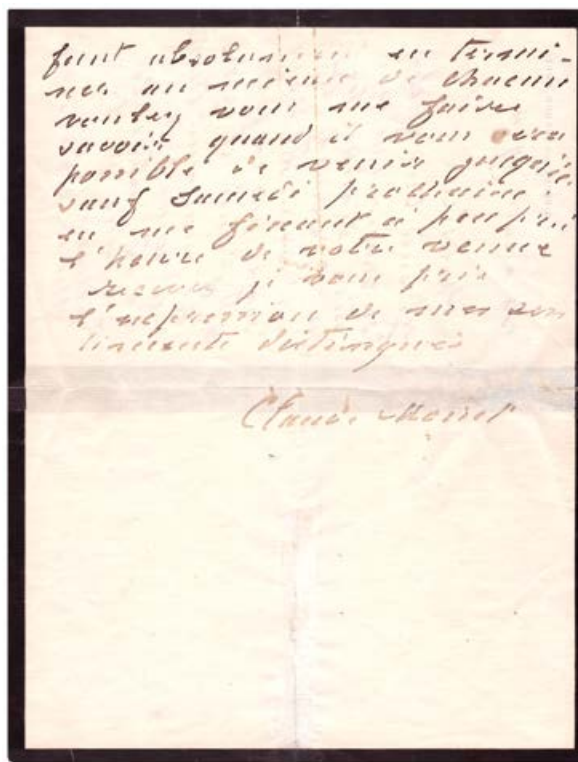 faut absolument en termi-
ner au mieux de chacun
veuillez vous me faire
savoir quand il vous sera
possible de venir jusqu'ici
sauf Samedi prochain
en me fixant à peu près
l'heure de votre venue
recevez je vous prie
l'expression de mes sen
timents distingués
Claude Monet